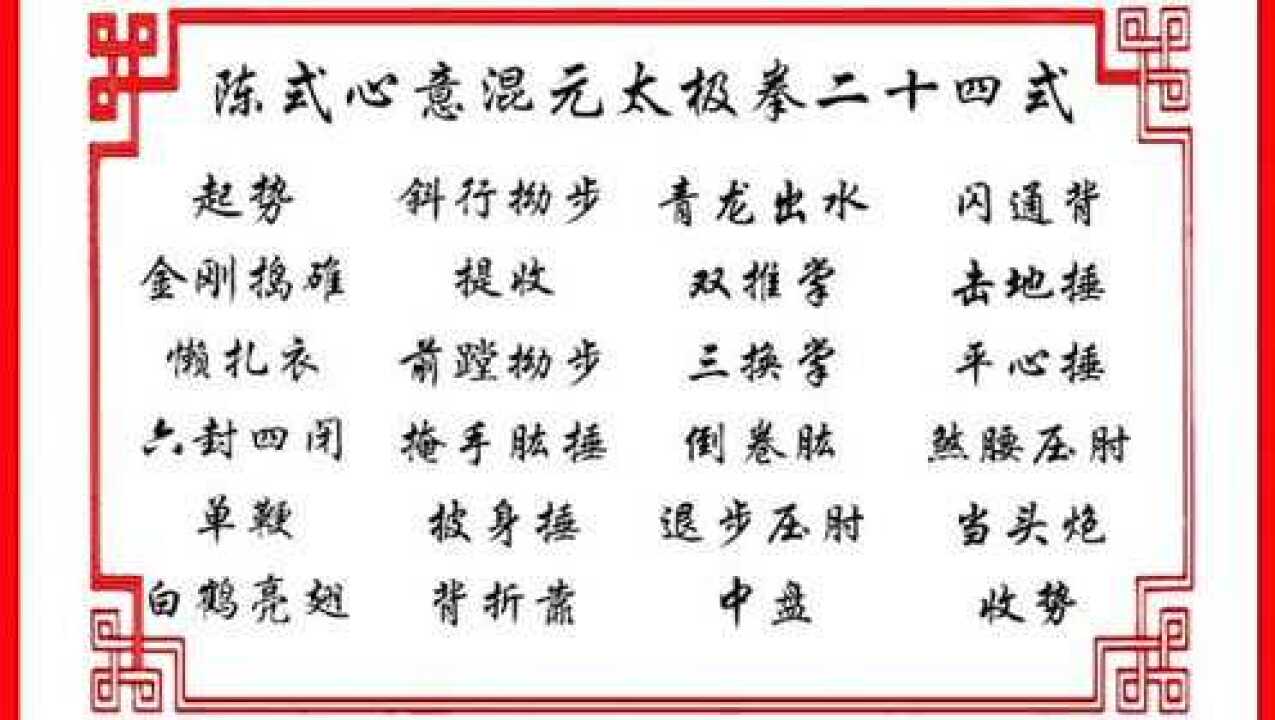 陈式心意混元太极拳二十四式
起势 斜行拗步 青龙出水 闪通背
金刚捣碓 提收 双推掌 击地捶
懒扎衣 前蹚拗步 三换掌 平心捶
六封四闭 掩手肱捶 倒卷肱 煞腰压肘
单鞭 披身捶 退步压肘 当头炮
白鹤亮翅 背折靠 中盘 收势